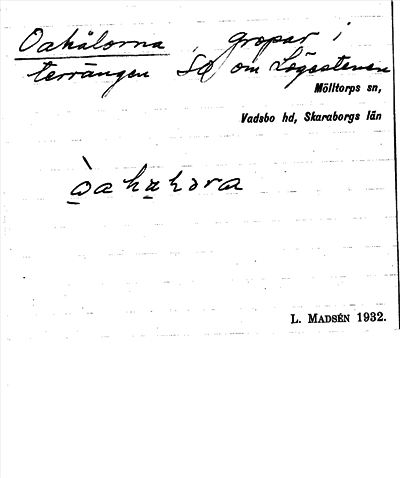 Oahålorna, gropar i
terrängen SO om Lögastenen
Mölltorps sn,
Vadsbo hd, Skaraborgs län
L. MADSÉN 1932.